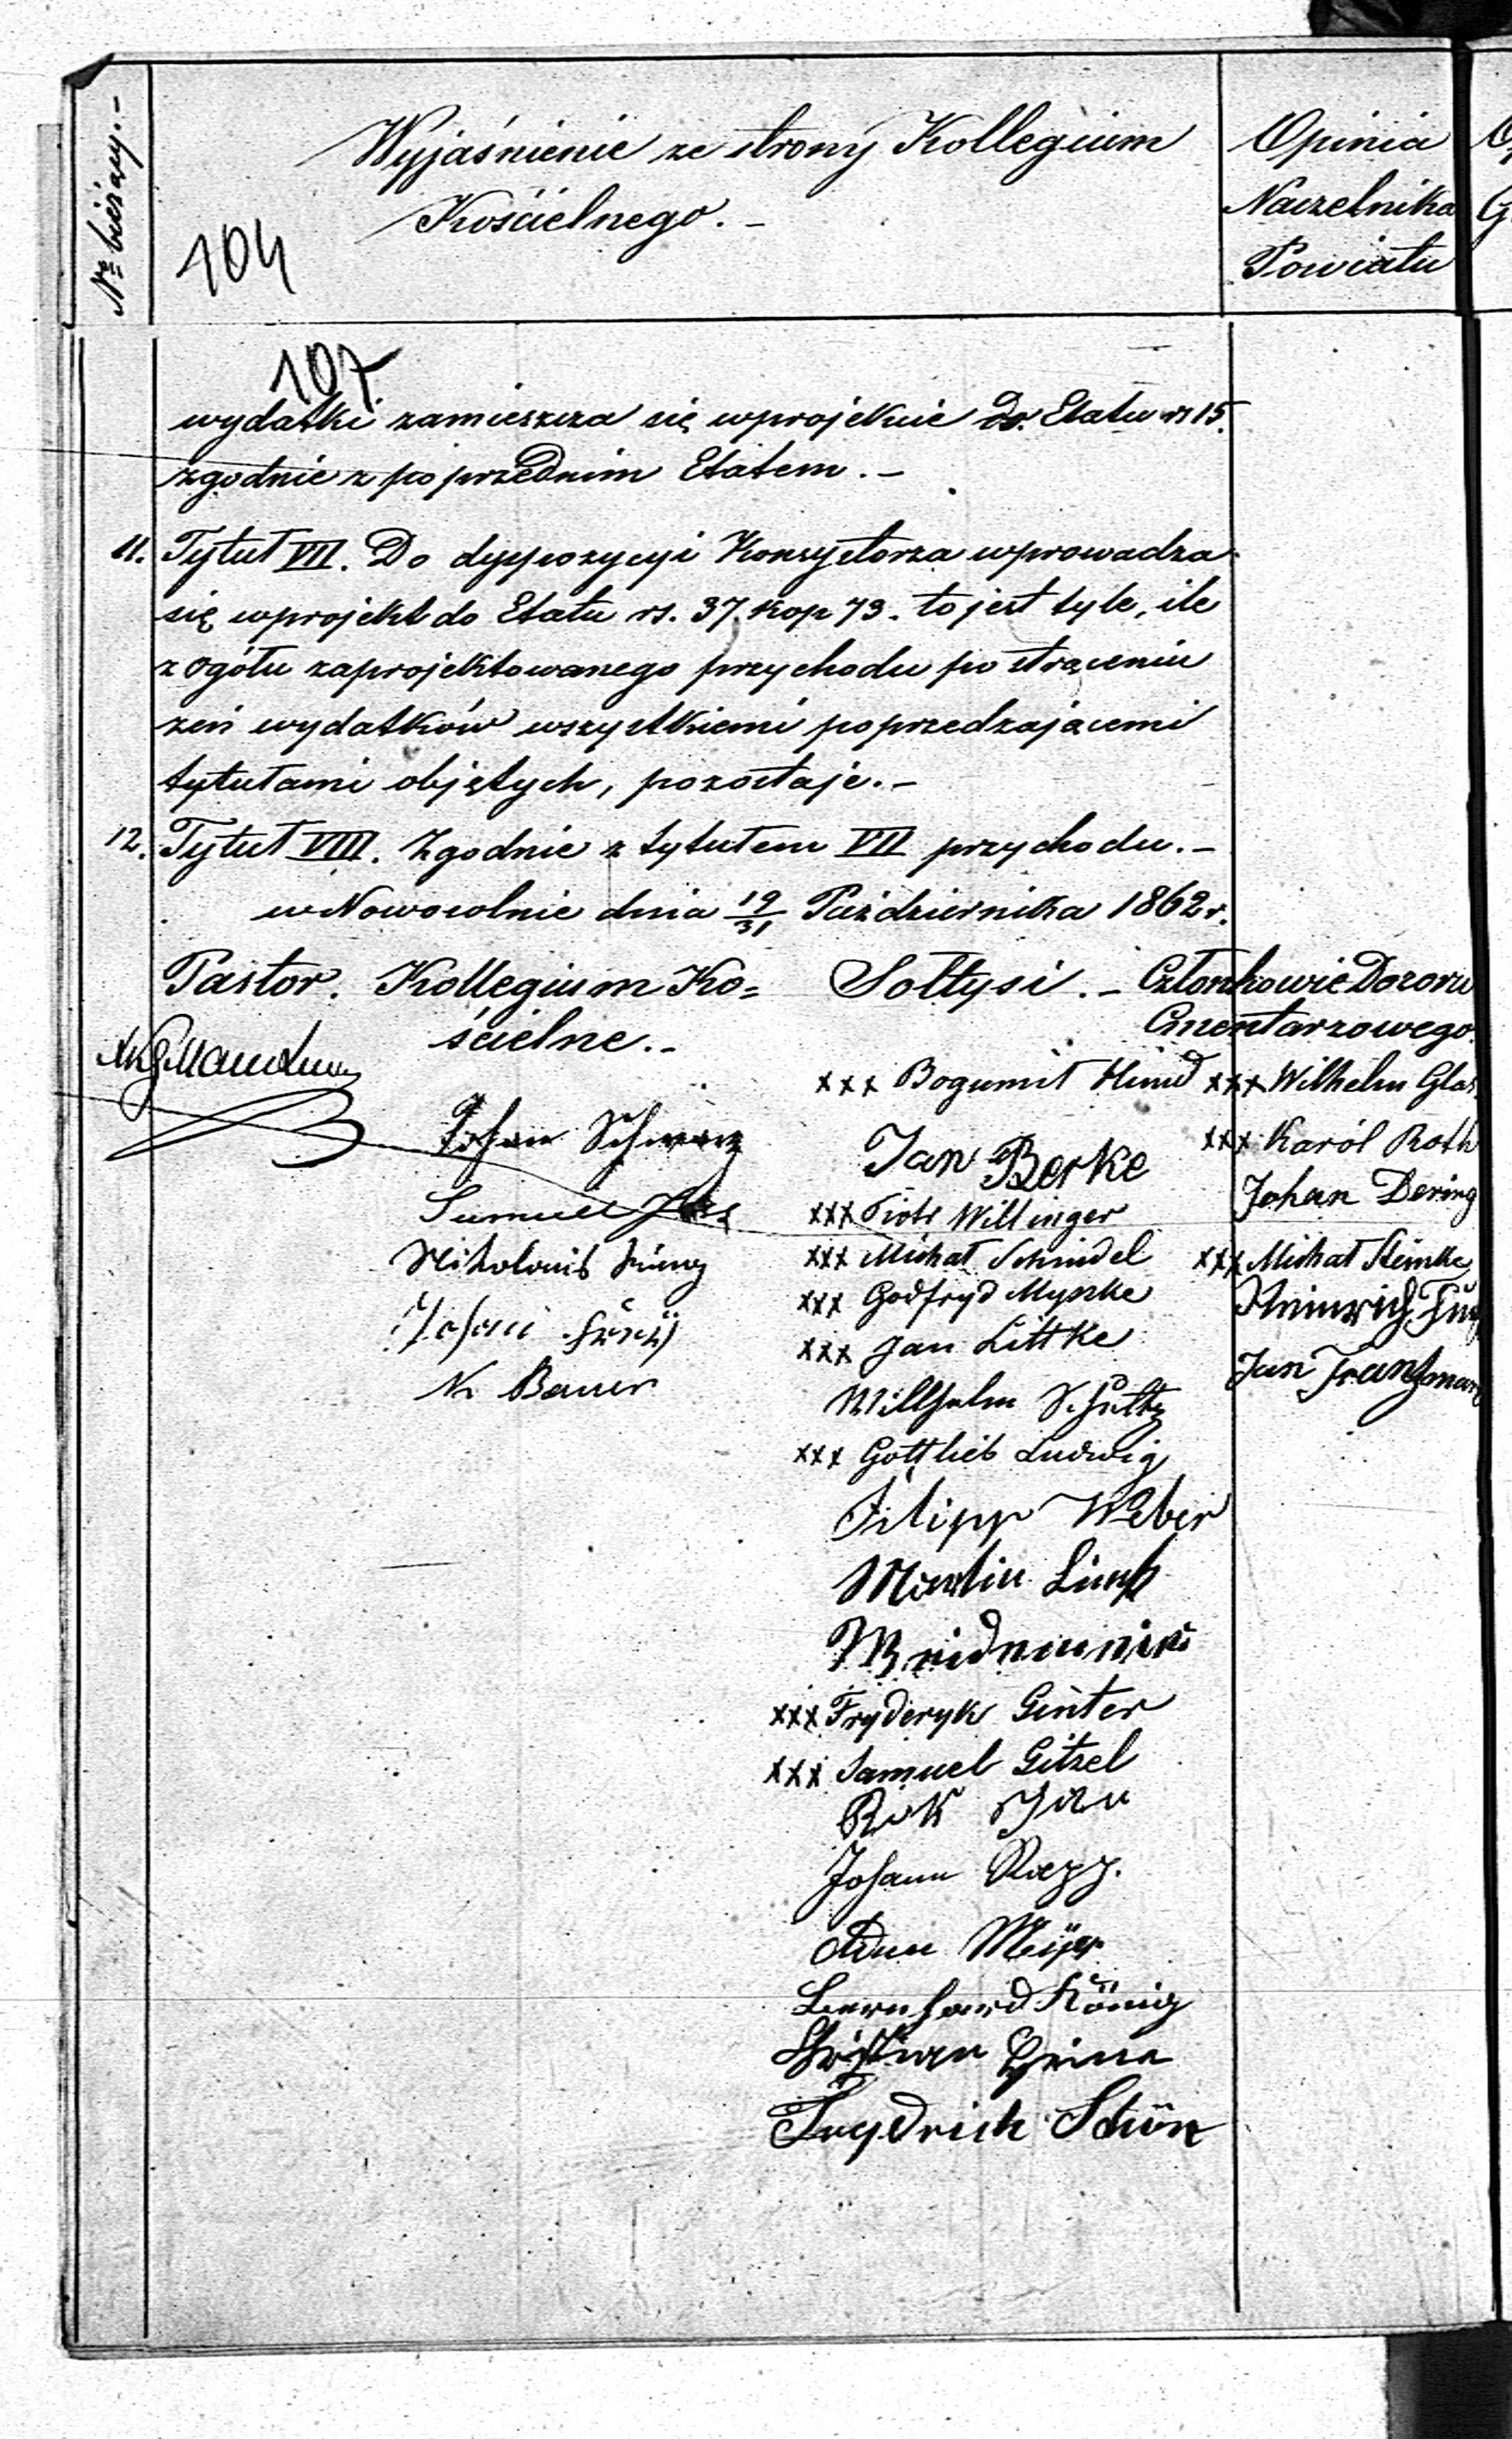 Nº bieżący.-
Wyjaśnienie ze strony Kollegium
Kościelnego. -
Opinia
Naczelnika
Powiatu
104
107
wydatki zamieszcza się wprojekcie do Etatu rs 15.
zgodnie z poprzednim Etatem. -
11. Tytuł VII. Do dyspozycyi Konsystorza wprowadza
się wprojekt do Etatu rs. 37. kop 73. to jest tyle, ile
z ogółu zaprojektowanego przychodu po strąceniu
zeń wydatków wszystkiemi poprzedzającemi
tytułami objętych, pozostaje. -
12. Tytuł VIII. Zgodnie z tytułem VII przychodu. -
w Nowosolnie dnia 19/31 Października 1862 r.
Pastor. Kollegium Ko=
ścielne. -
Johann Schwarz
Samuel
König
Johann
Bauer
Sołtysi. -
xxx Bogumił Hund
Jan Berke
xxx Piotr Willinger
xxx Michał Schindel
xxx Godfryd Myszke
xxx Jan Littke
Willhelm Schultz
xxx Gottlieb Ludwig
Filipp Weber
Martin
xxx Fryderyk Ginter
xxx Samuel Gitzel
Rok Jan
Johann Rapp.
Adam Meÿer
Bernhard König
Christian
Frydrich Schön
Członkowie Dozoru
Cmentarzowego.
xxx Wilhelm Glas
xxx Karól Roth
Johan Dering
xxx Michał Steinke
Heinrich
Jan Franzman